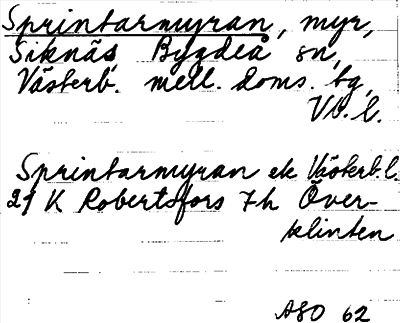 Sprintarmyran, myr,
Siknäs Bygdeå sn,
Västerb. mell. doms. bg,
Vb. l.
Sprintarmyran ek Västerb. l.
21 K Robertsfors 7h Över-
klinten
ASO 62